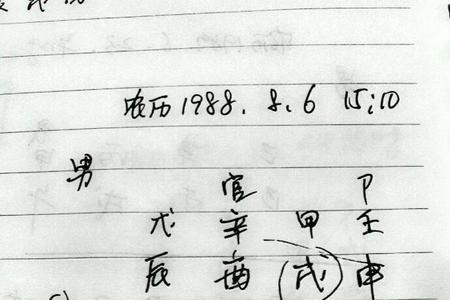 农历1988.8.6 15:10
男 官 卩
戊 辛 甲 壬
辰 酉 (戌) 申